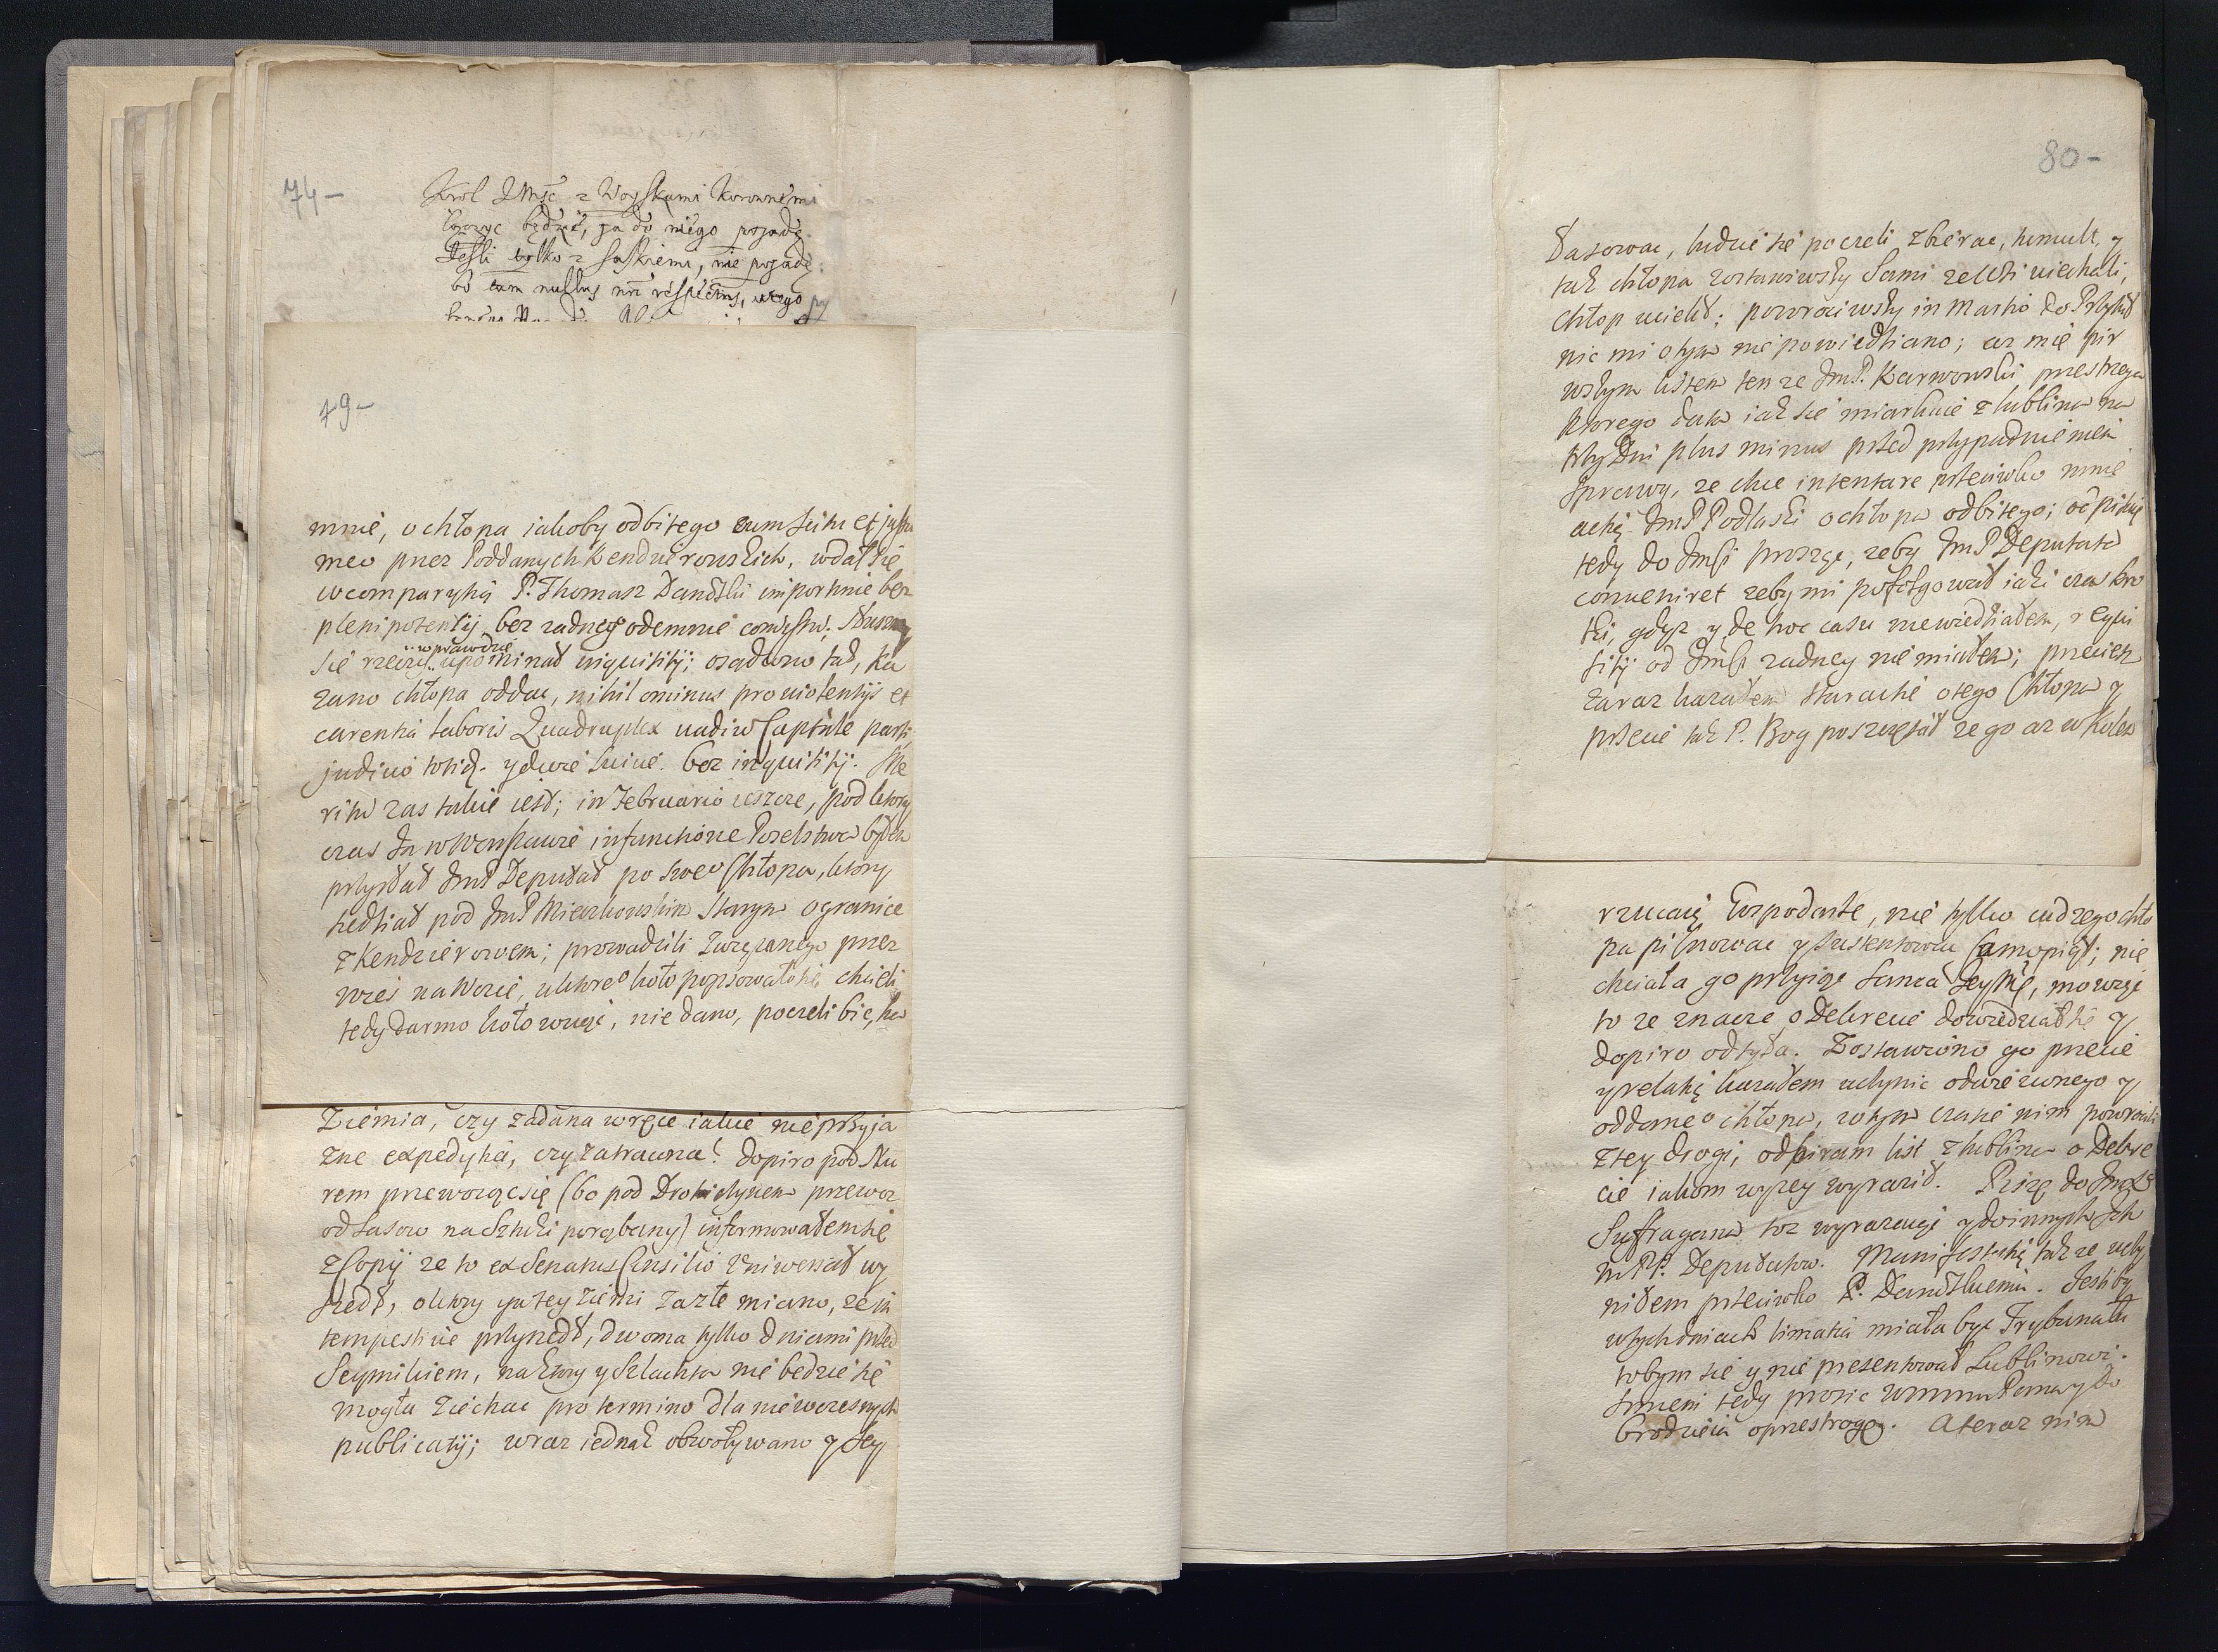 74-
Krol JMść z Woyskami Koronnemi
łączyc będzie, ja do niego pojadę.
Jeśli tylko z Saskiemi, nie pojadę.
bo tam nullus
79-
mnie, o chłopa iakoby odbitego cum scitu et jussu
meo przez Poddanych Kendzierowskich, wdał się
w comparycyą P. Thomasz Dandzki importunie bez
plenipotentij bez zadnego odemnie
się rzeczy wprawdzie upominał inquisitij; osądzono tak, ka
zano chłopa oddac, nihilominus pro violentijs et
carentia laboris Quadruplex vadium Capitule parti,
judicio totid. y dwie Sivie. bez inquisitij. Me
ritum zas takie iest; in Februario ieszcze, pod ktory
czas Ja w Warszawie in functione Poselstwa byłem
przysłał JmP Deputat po swego Chłopa, ktory
siedział pod JmP Mierzkowskim Starym o granice
z Kendzierowem; prowadzili związanego przez
wies na Wozie, u ktorego koło popsowało się chcieli
tedy darmo koło wziąć, nie dano, poczeli bic, ha
Ziemia, czy zadana w ręce iakie nieprzyja
zne expedycia, czy zatracona? dopiro pod Nu
rem przewożąc się (bo pod Drohiczynem przewoz
od Sasow na Sztuki porąbany) informowałem się
z Copij ze to ex Senatus Consilio Uniwersał wy
szedł, o ktory y w tey ziemi zarte miano, ze in
tempestive przyszedł, dwoma tylko dniami przed
Seymikiem, na ktory y Szlachta nie bedzie się
mogła ziechac pro termino dla niewczesnych
publicatij; wraz iednak obwoływano y Sey
80-
łasowac, ludzie się poczeli zbierac, tumult, y
tak chłopa zostawiwszy Sami ze Wsi uiechali,
Chłop uciekł; powrociwszy in Martio do Przybyt
nic mi o tym nie powiedziano; az mie pir
wszym listem tenze JmP. Karwowski przestrzega
ktorego data iak się miarkuie z Lublina na
trzy Dni plus minus przed przypadnieniem
Sprawy, ze chce intentare przeciwko mnie
actią JmP Podlaski o chłopa odbitego; odpisuię
tedy do Jmści prosząc, zeby JmP Deputata
conveniret zeby mi pofolgował iaki czas kro
tki, gdyz y de hoc casu niewiedziałem, requi
sitij od Jmści zadney nie miałem; przeciesz
zaraz kazałem staracsie o tego Chłopa y
przecie tak P. Bog poszczęścił ze go az w Kolen
rzucaią Gospodarze, nie tylko cudzego chło
pa pilnowac y sustentowac Samopiąt; nie
chciała go przyiąc Sama Jeymć, mowiąc
to ze znacze o Dekrecie dowiedział się y
dopiro odsyła. Zostawiono go przecie
y relatią kazałem uczynic odwiezionego y
oddanego chłopa, w tym czasie nim powrocili
z tey drogi, odbiram list z Lublina o Dekre
cie iakom wyzey wyraził. Piszę do Jmści
Suffragana toz wyrazaiąc y do innych Ich
m PP. Deputatow. Manifestatią takze uczy
niłem przeciwko P. Dandzkiemu. Jesliby
w tych dniach limatia miała byc Trybunału
tobym się y nie prezentował Lublinowi.
tedy prosic
brodzieia o przestrogę. A teraz nim